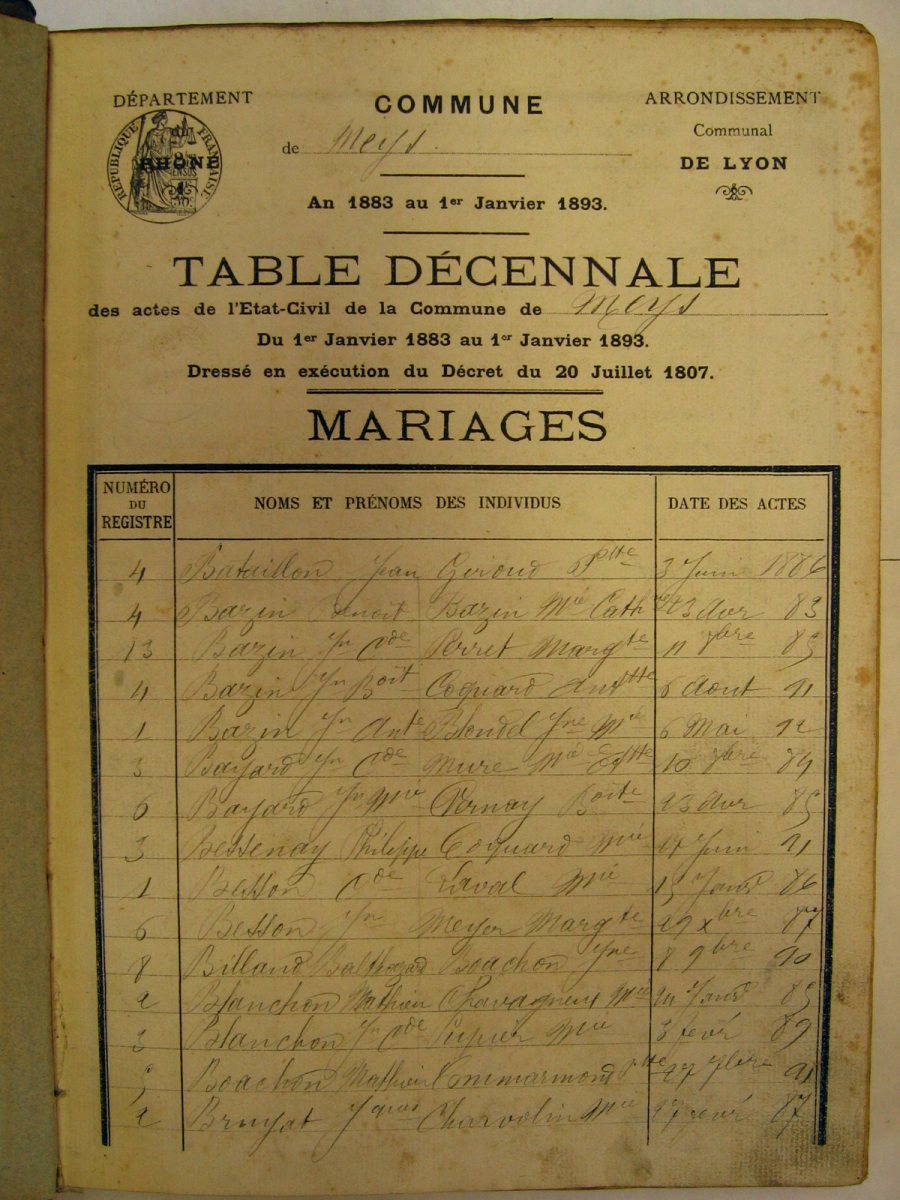 DÉPARTEMENT
COMMUNE
ARRONDISSEMENT
RÉPUBLIQUE FRANÇAISE
RHÔNE
de Meys
Communal
DE LYON
An 1883 au 1er Janvier 1893.
TABLE DÉCENNALE
des actes de l'Etat-Civil de la Commune de Meys
Du 1er Janvier 1883 au 1er Janvier 1893.
Dressé en exécution du Décret du 20 Juillet 1807.
MARIAGES
NUMÉRO DU REGISTRE NOMS ET PRÉNOMS DES INDIVIDUS DATE DES ACTES
4 Bataillon Jean Giroud 3 Juin 1886
4 Bazin Benoit Bazin Mie Cath 23 Avr 83
13 Bazin Jn Cde Perret Margte 11 8bre
4 Bazin Jn Boit Coquard Anttte 6 Aout 91
1 Bazin Jn Ante Blondel Jne Mie 6 Mai 92
3 Bayard Jn Cde Mure Mie 10 84
6 Bayard Jn Mie Vernay Boite 23 Avr 85
3 Bessenay Philippe Coquard Mie Juin 91
1 Besson Cde Laval Mie Janv 86
6 Besson Jn Meyer Margte 29 xbre 87
8 Billand Balthazard Boachon Jne 8 9bre 90
2 Blanchon Mathieu Chavagneux Mie Janv
3 Blanchon Jn Cde Pupier Mie 3 fevr 89
Boachon Mathieu Commarmond 27 91
2 Bruyat Jques Charvolin Mie 17 fevr 87